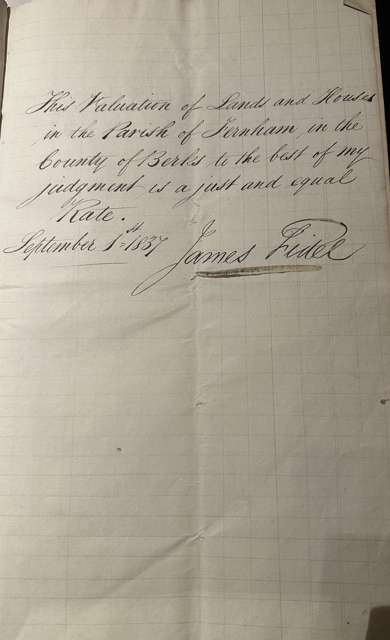 This Valuation of Lands and Houses
in the Parish of Fernham, in the
County of Berks to the best of my
judgment is a just and equal
Rate.
September 1st 1837 James Fidel